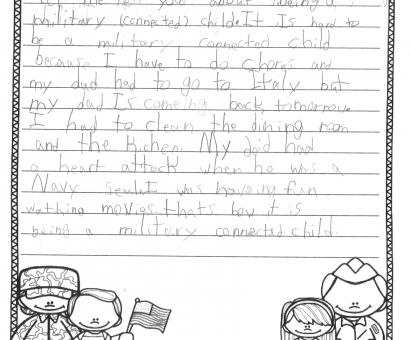 tell you about being a
military (connected) child. It Is hard to
be a military connected child
because I have to do chores and
my dad had to go to Italy but
my dad Is comeing back tomorrow.
I had to clean the dining room
and the kichen. My dad had
a heart attack when he was a
Navy Seal. I was haveing fun
wathing movies. thats how it is
being a military connected child.